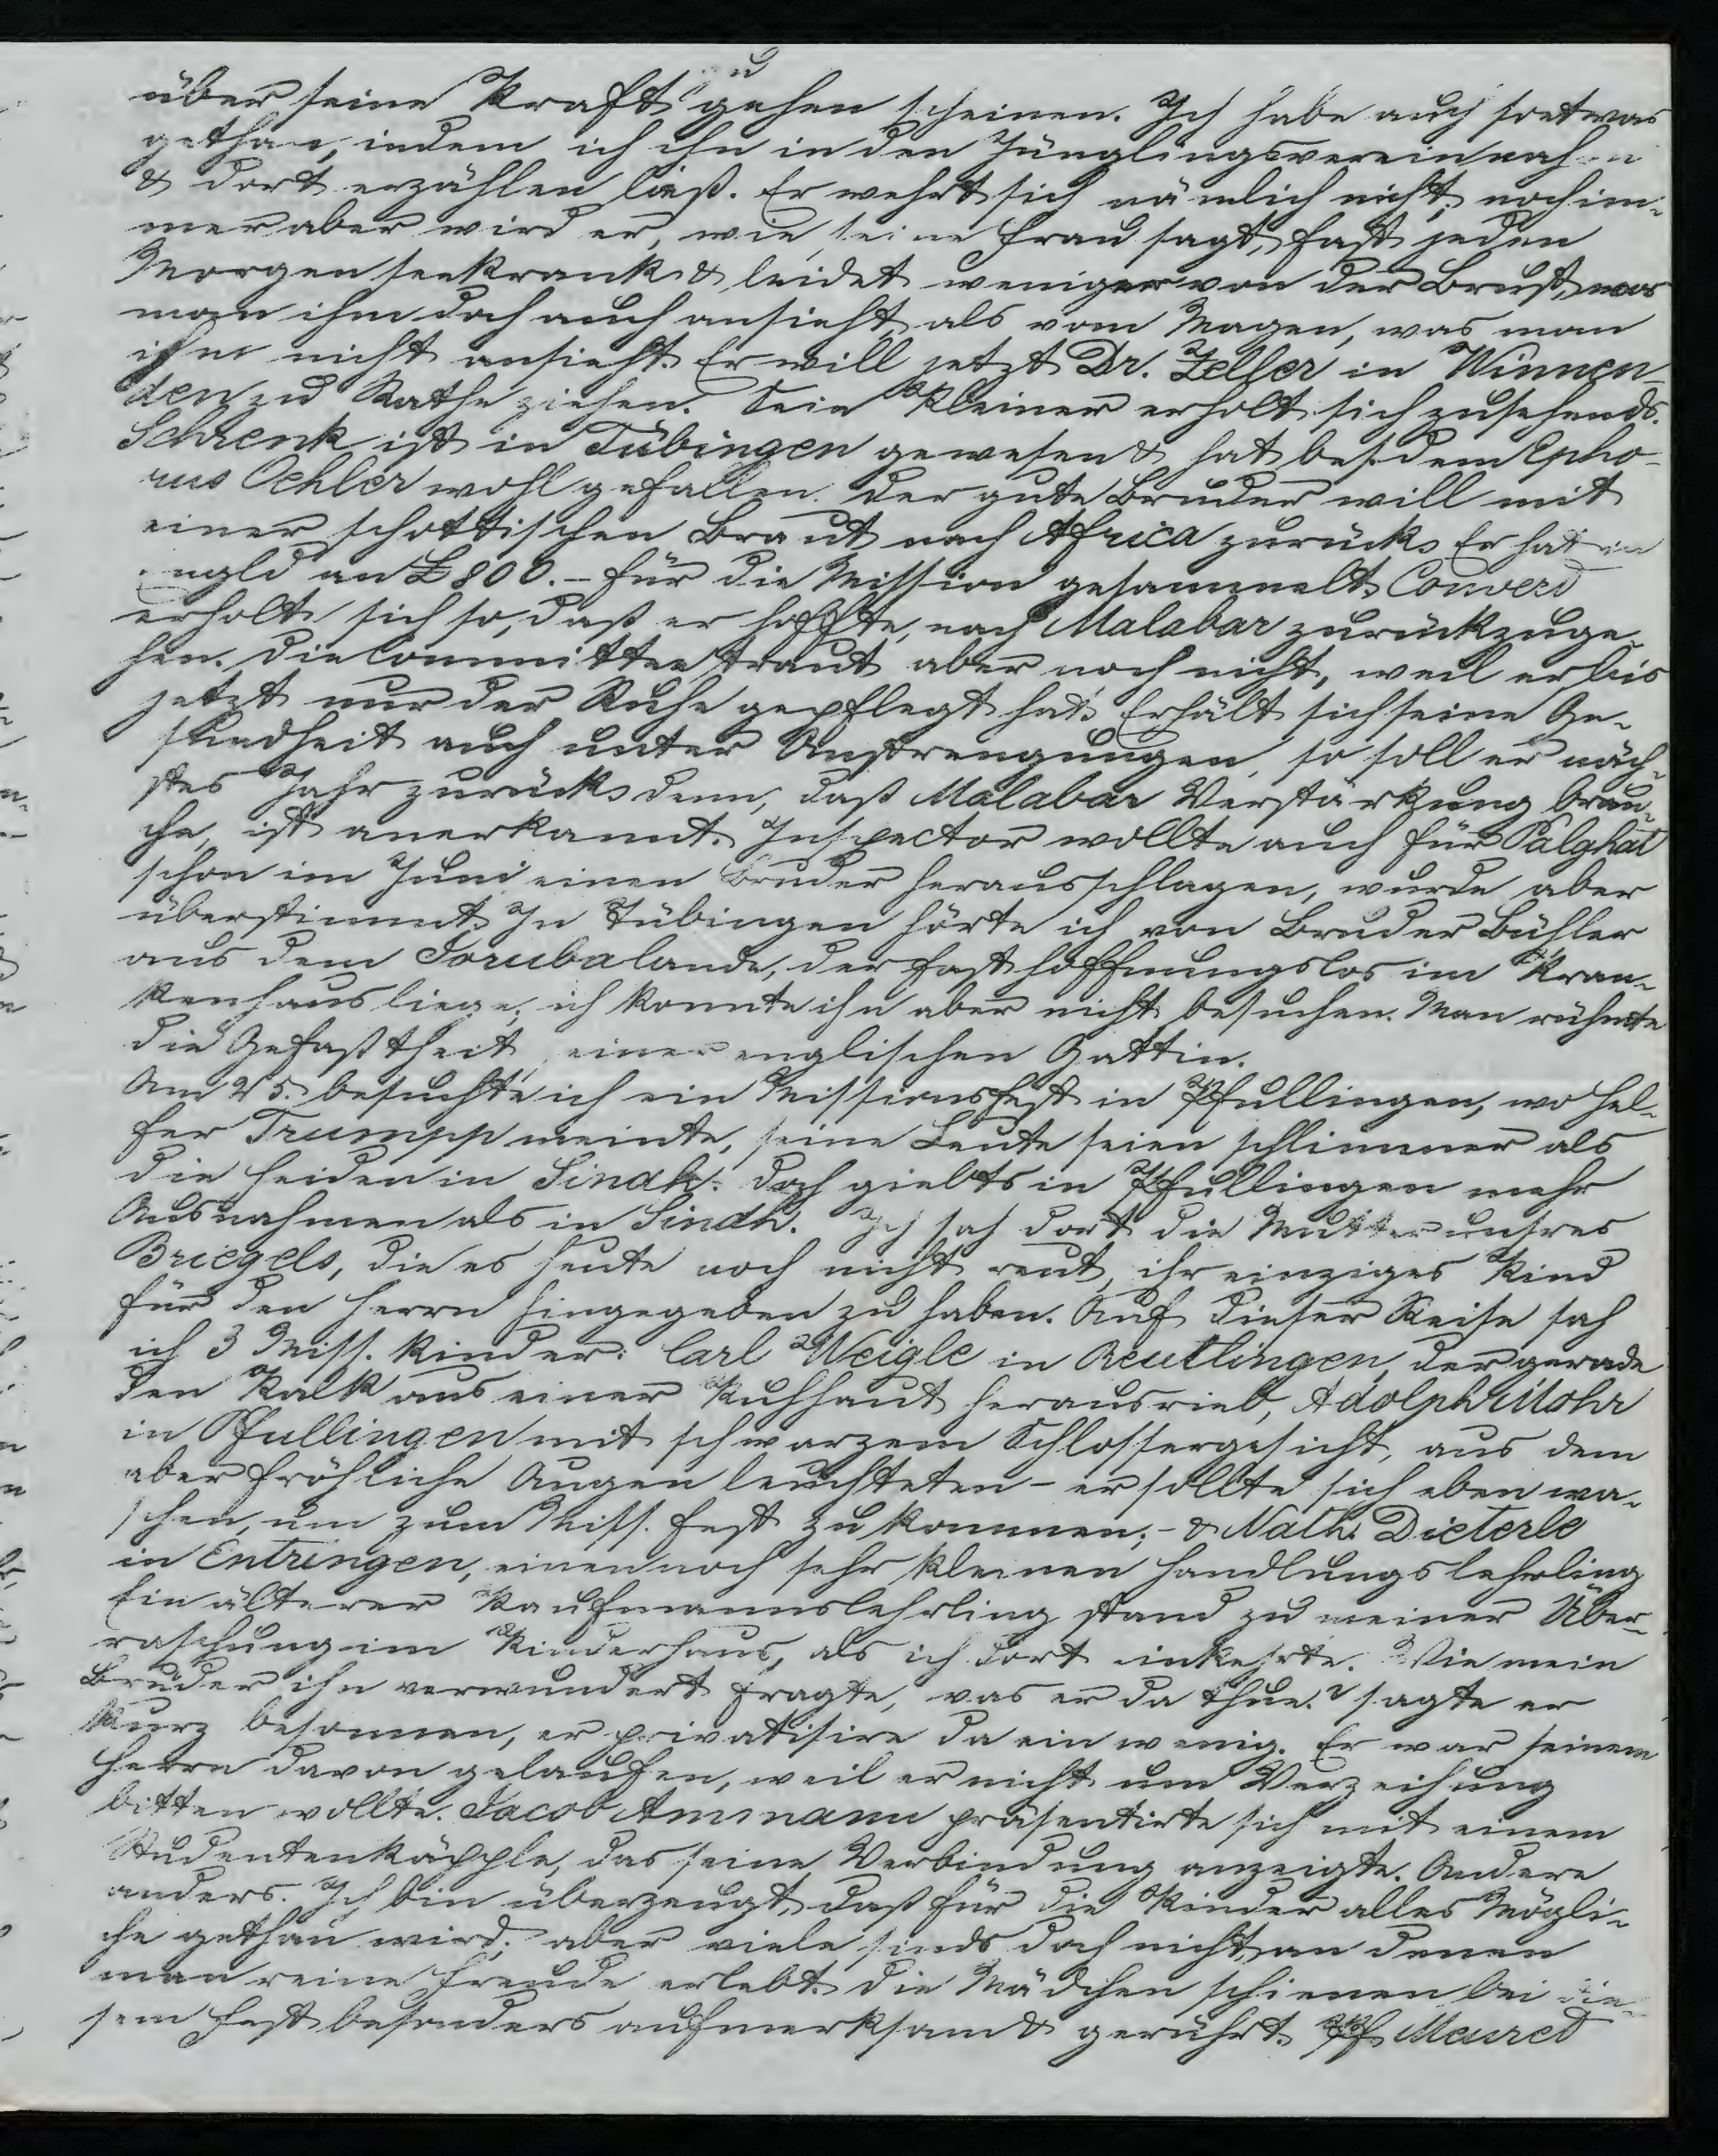 über seine Kraft zu gehen scheinen. Ich habe auch so etwas
gethan, indem ich ihn in den Jünglingsverein nahm
& dort erzählen ließ. Er wehrt sich nämlich nicht, noch im-
mer aber wird er, wie seine Frau sagt, fast jeden
Morgen seekrank & leidet weniger von der Brust, was
man ihm doch auch ansieht, als vom Magen, was man
ihm nicht ansieht. Er will jetzt Dr. Zeller in Winnen-
den zu Rathe ziehen. Sein Kleiner erholt sich zusehends.
Schrenk ist in Tübingen gewesen & hat bei dem Epho-
rus Oehler wohl gefallen. Der gute Bruder will mit
einer schottischen Braut nach Africa zurück. Er hat in
Engld an £ 800.- für die Mission gesammelt. Convert
erholt sich so, daß er hoffte, nach Malabar zurückzuge-
hen. Die Committee traut aber noch nicht, weil er bis
jetzt nur der Ruhe gepflegt hat. Erhält sich seine Ge-
sundheit auch unter Anstrengungen, so soll er näch-
stes Jahr zurück. denn, daß Malabar Verstärkung brau-
che, ist anerkannt. Inspector wollte auch für Palghat
schon im Juni einen Bruder herausschlagen, wurde aber
überstimmt. In Tübingen hörte ich von Bruder Bühler
aus dem Jorubalande, der fast hoffnungslos im Kran-
kenhaus liege, ich konnte ihn aber nicht besuchen. Man rühmte
die Gefaßtheit seiner englischen Gattin.
Am 25. besuchte ich ein Missionsfest in Pfullingen, wo Hel-
fer Trumpp meinte, seine Leute seien schlimmer als
die Heiden in Sindh. Doch giebts in Pfullingen mehr
Ausnahmen als in Sindh. Ich sah dort die Mutter unsres
Briegels, die es heute noch nicht reut, ihr einziges Kind
für den Herrn hingegeben zu haben. Auf dieser Reise sah
ich 3 Miss. Kinder: Carl Weigle in Reutlingen, der gerade
den Kalk aus einer Kuhhaut herausrieb, Adolph Mohr
in Pfullingen mit schwarzem Schlossergesicht, aus dem
aber fröhliche Augen leuchteten - er sollte sich eben wa-
schen, um zum Miss. Fest zu kommen; - & Nath. Dieterle
in Entringen, einen noch sehr kleinen Handlungslehrling
Ein älterer Kaufmannslehrling stand zu meiner Über-
raschung im Kinderhaus, als ich dort einkehrte. Wie mein
Bruder ihn verwundert fragte, was er da thue? sagte er
kurz besonnen, er privatisire da ein wenig. Er war seinem
Herrn davon gelaufen, weil er nicht um Verzeihung
bitten wollte. Jacob Ammann präsentirte sich mit einem
Studentenkäpple, das seine Verbindung anzeigte. Andere
anders. Ich bin überzeugt, daß für die Kinder alles Mögli-
che gethan wird; aber viele sinds doch nicht, an denen
man reine Freude erlebt. Die Mädchen schienen bei die-
sem Fest besonders aufmerksam & gerührt. Pf. Meuret